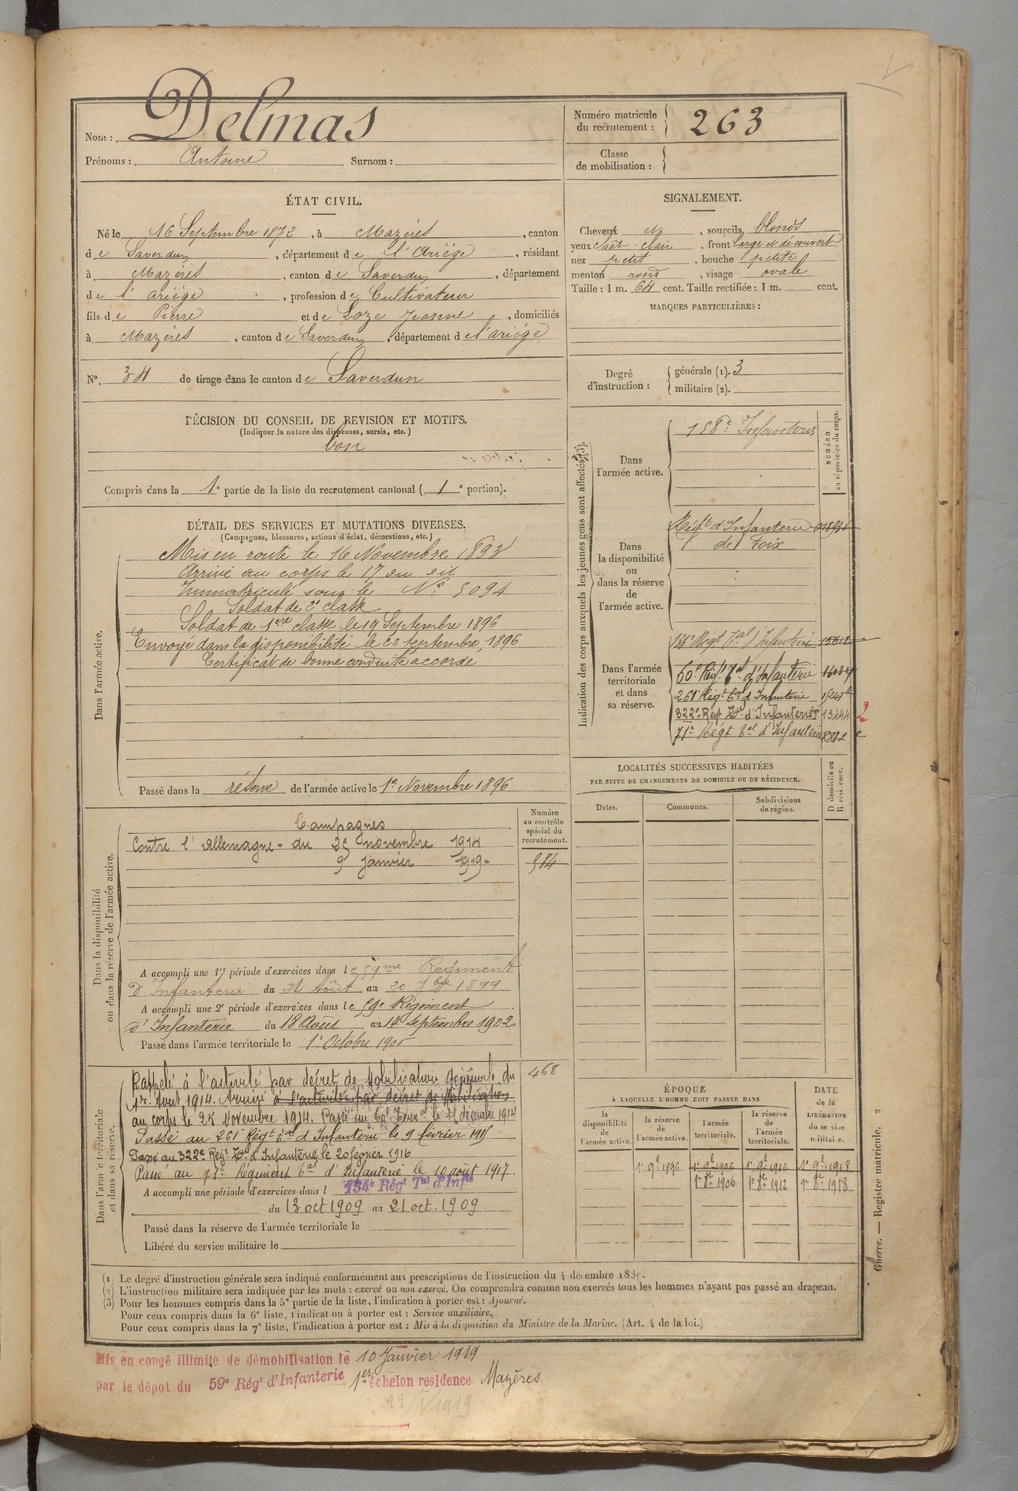 Nom : Delmas
Prénoms : Antoine Surnom :
Numéro matricule du recrutement : 263
Classe de mobilisation :
ÉTAT CIVIL.
Né le 16 Septembre 1872, à Mazères, canton
de Saverdun, département de l'Ariège, résidant
à Mazères, canton de Saverdun, département
de l'ariège, profession de Cultivateur
fils de Pierre et de Loze Jeanne, domiciliés
à Mazères, canton de Saverdun, département de l'ariège
N° 34 de tirage dans le canton de Saverdun
SIGNALEMENT.
Cheveux et, sourcils blonds
yeux chât-clair, front large et découvert
nez petit, bouche petite
menton rond, visage ovale
Taille : 1 m. 64 cent. Taille rectifiée : 1 m. cent.
MARQUES PARTICULIÈRES :
Degré d'instruction : générale (1). 3
militaire (2).
DÉCISION DU CONSEIL DE REVISION ET MOTIFS.
(Indiquer la nature des dispenses, sursis, etc.)
bon
Compris dans la 1e partie de la liste du recrutement cantonal ( 1e portion).
DÉTAIL DES SERVICES ET MUTATIONS DIVERSES.
(Campagnes, blessures, actions d'éclat, décorations, etc.)
Dans l'armée active.
Mis en route le 16 Novembre 1893
Arrivé au corps le 17 du dit
Immatriculé sous le N° 5094
Soldat de 2e classe
Soldat de 1ère classe le 19 Septembre 1896
Envoyé dans la disponibilité le 22 Septembre 1896
Certificat de bonne conduite accordé
Passé dans la réserve de l'armée active le 1er Novembre 1896
Indication des corps auxquels les jeunes gens sont affectés (3).
NUMÉRO au répertoire du corps.
Dans l'armée active.
Infanterie
Dans la disponibilité ou dans la réserve de l'armée active.
Régt d'Infanterie
de Foix
Dans l'armée territoriale et dans sa réserve.
Régt Tal d'Infanterie
60e Régt Tal d'Infanterie
261e Régt Tal d'Infanterie
322e Régt Tal d'Infanterie 13244 2
71e Régt Tal d'Infanterie
LOCALITÉS SUCCESSIVES HABITÉES
PAR SUITE DE CHANGEMENTS DE DOMICILE OU DE RÉSIDENCE.
Dates. Communes. Subdivisions de région. D domicile ou R résidence.
Numéro au contrôle spécial du recrutement.
Dans la disponibilité ou dans la réserve de l'armée active.
Campagnes
Contre l'Allemagne - du 25 novembre 1914
9 janvier 1919 -
584
A accompli une 1re période d'exercices dans le 59me Régiment
d'Infanterie du 24 Août au 20 7bre 1899
A accompli une 2e période d'exercices dans le 59e Régiment
d'Infanterie du 18 Août au 14 Septembre 1902
Passé dans l'armée territoriale le 1er Octobre 1906
Dans l'armée territoriale et dans sa réserve.
Rappelé à l'activité par décret de mobilisation générale du
1er Aout 1914. Arrivé à l'activité par décret de Mobilisation
au corps le 25 Novembre 1914. Passé au 60e Terr. le décembre 1914
Passé au 261e Régt Tal d'Infanterie le 9 février 1915
Passé au 322e Régt Tal d'Infanterie le 20 février 1916
Passé au 71e Régiment Tal d'Infanterie le 10 aout 1917.
A accompli une période d'exercices dans l 134e Régt Tal d'Infie
du 13 oct 1909 au 21 oct. 1909
Passé dans la réserve de l'armée territoriale le
Libéré du service militaire le
468
ÉPOQUE
À LAQUELLE L'HOMME DOIT PASSER DANS
la disponibilité de l'armée active.
la réserve de l'armée active.
l'armée territoriale.
la réserve de l'armée territoriale.
DATE de la LIBÉRATION du service militaire.
1er 9bre 1896 1er 9bre 1906 1er 9bre 1912 1er 9bre 1918
1er 8bre 1906 1er 8bre 1912 1er 8bre 1918
Guerre. — Registre matricule,
(1) Le degré d'instruction générale sera indiqué conformément aux prescriptions de l'instruction du 4 décembre 1889.
(2) L'instruction militaire sera indiquée par les mots : exercé ou non exercé. On comprendra comme non exercés tous les hommes n'ayant pas passé au drapeau.
(3) Pour les hommes compris dans la 5e partie de la liste, l'indication à porter est : Ajourné.
Pour ceux compris dans la 6e liste, l'indication à porter est : Service auxiliaire.
Pour ceux compris dans la 7e liste, l'indication à porter est : Mis à la disposition du Ministre de la Marine. (Art. 4 de la loi.)
Mis en congé illimité de démobilisation le 10 Janvier 1919
par le dépot du 59e Régt d'Infanterie 1er échelon residence Mazères